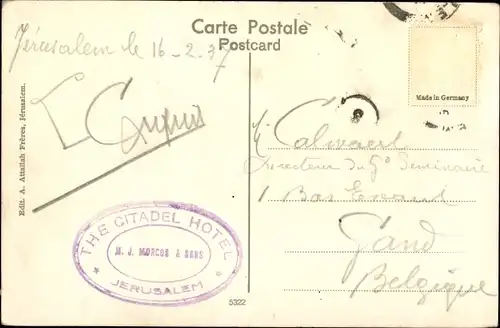 Carte Postale
Postcard
Jérusalem le 16-2-37
Made in Germany
Edit. A. Attallah Frères, Jérusalem.
Calwaert
Directeur du Gd Seminaire
1 Bas
Gand
Belgique
THE CITADEL HOTEL
M. J. MORCOS & SONS
JERUSALEM
5322